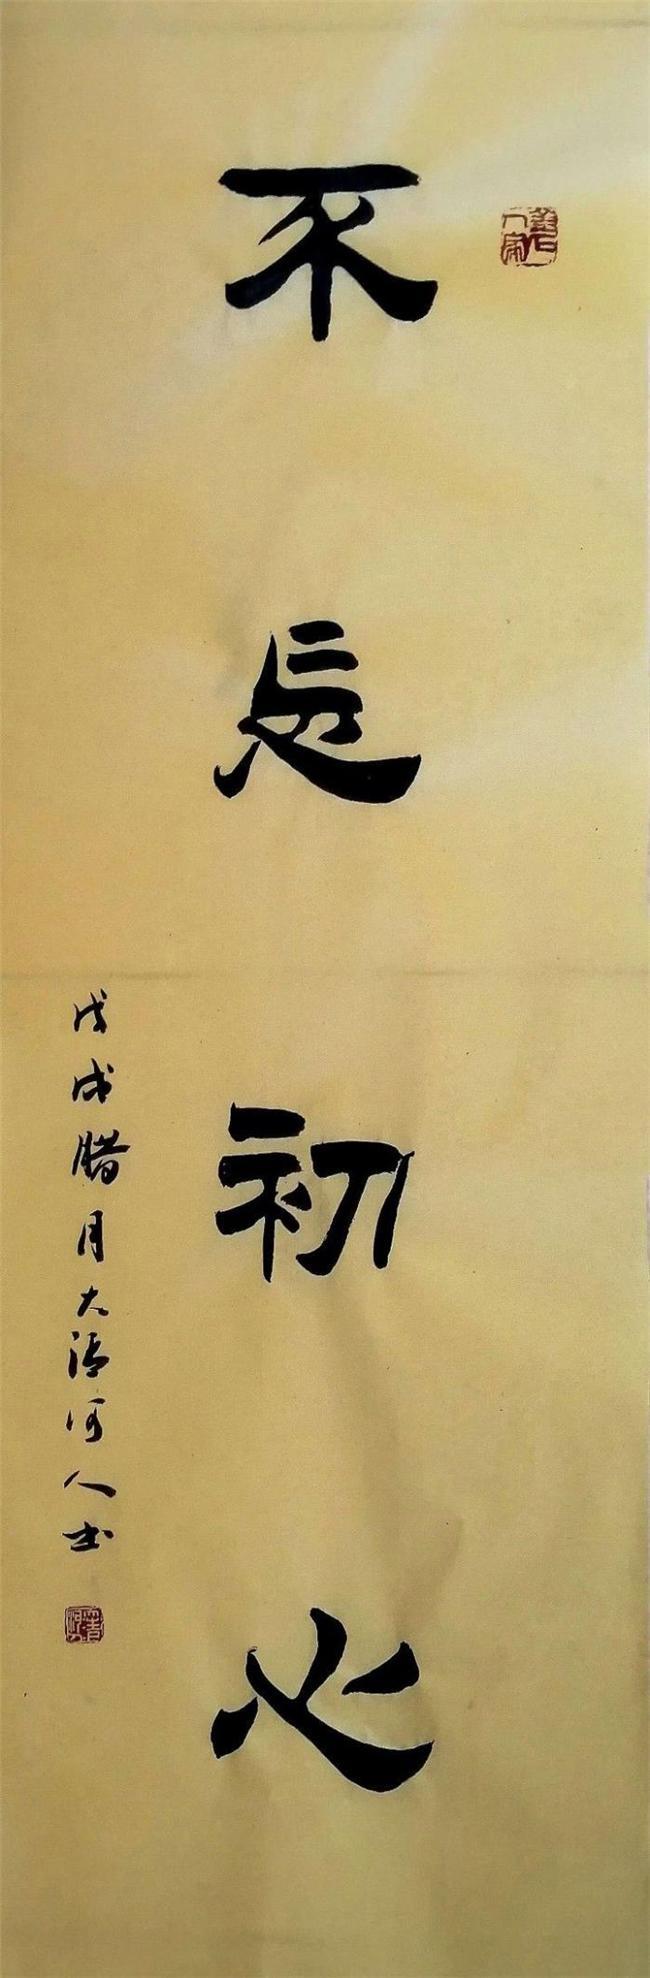 不忘初心
戊戌腊月大清河人书